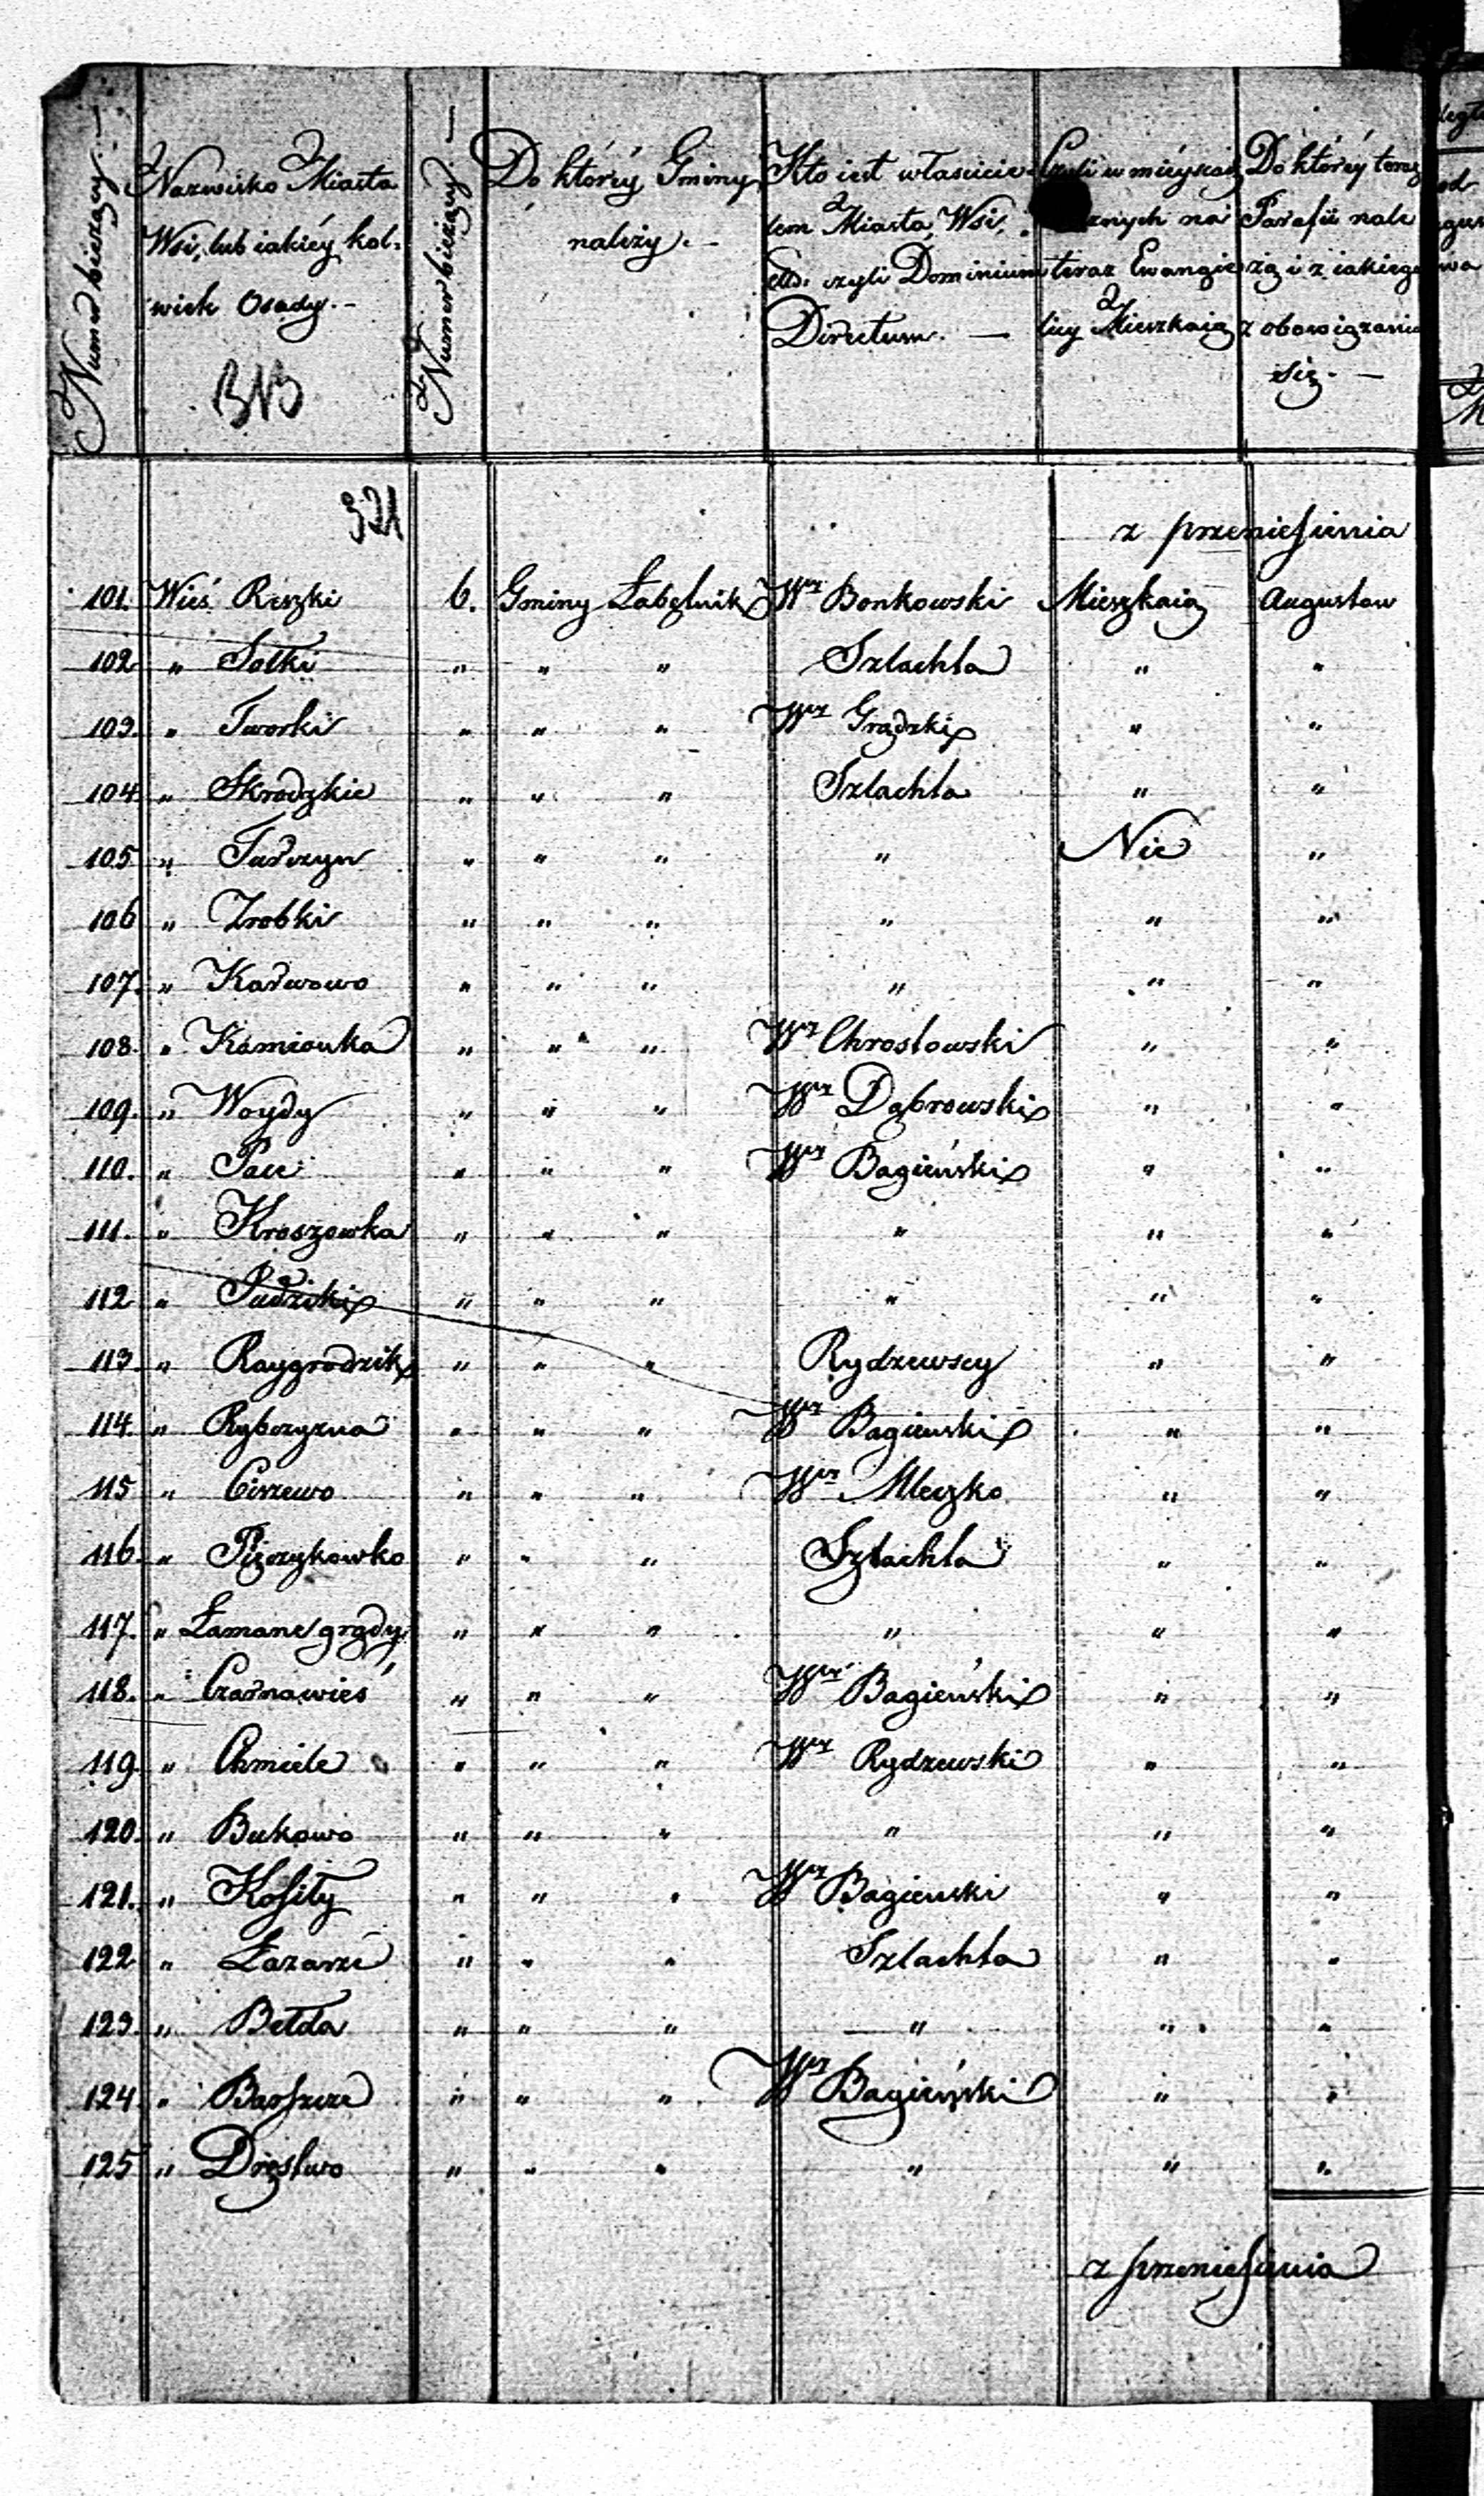 Numer bieżący. —
Nazwisko Miasta
Wsi, lub iakiéy kol-
wiek Osady. -
Numer bieżący —
Do któréy Gminy
należy. -
Kto iest właścicie-
lem Miasta, Wsi,
czyli Dominium
Directum. —
Czyli w mieyscach
teraz Ewangie
licy Mieszkaią
Do któréy teraz
Parafii nale
żą i z iakiego
z obowiązania
się. —
321
z przeniesienia
101. Wieś Reszki 6. Gminy Łabętnik Wny Bonkowski Mieszkaią Augustow
102 " Solki " " " Szlachta " "
103. " Tworki " " " Wny Grądzki " "
104 " Skrodzkie " " " Szlachta " "
105 " Tarczyn " " " " Nie "
106 " Zrobki " " " " " "
107. " Karwowo " " " " " "
108. " Kamionka " " " Wny Chrostowski " "
109. " Woydy " " " Wny Dąbrowski " "
110. " Pace " " " Wny Bagieński " "
111. " Kroszowka " " " " " "
112 " " " " " " "
113. " Raygrodzik " " " Rydzewscy " "
114. " Rybczyzna " " " Wny Bagienski " "
115 " Ciszewo " " " Wny Mleczko " "
116. " Pięczykowko " " " Szlachta " "
117. " Łamane grądy " " " " " "
118. " Czarnawieś " " " Wny Bagieński " "
119. " Chmiele " " " Wny Rydzewski " "
120. " Bukowo " " " " " "
121. " Kosiły " " " Wny Bagienski " "
122 " Łazarze " " " Szlachta " "
123. " Bełda " " " " " "
124 " Barszcze " " " Wny Bagieński " "
125 " Dręstwo " " " " " "
z przeniesienia